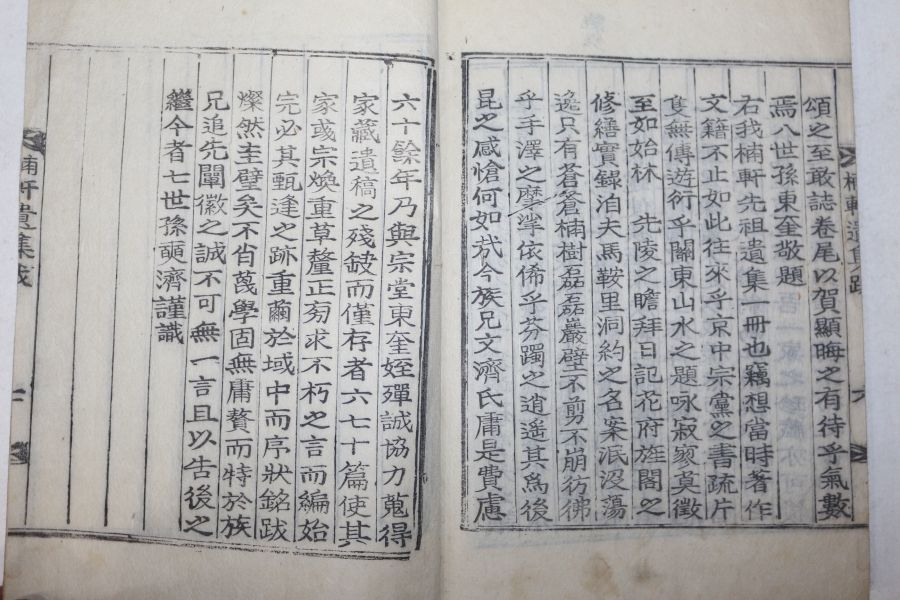 頌之至敢誌卷尾以賀顯晦之有待乎氣數
焉八世孫東奎敬題
右我楠軒先祖遺集一冊也竊想當時著作
文籍不止如此往來乎京中宗黨之書疏片
隻無傳遊衍乎關東山水之題咏寂寥莫徵
至如始林 先陵之瞻拜日記花府旌閣之
修繕實錄洎夫馬鞍里洞約之名案泯沒蕩
逸只有蒼蒼楠樹磊磊巖壁不剪不崩彷彿
乎手澤之摩挲依俙乎芬躅之逍遙其爲後
昆之感愴何如㢤今族兄文濟氏庸是費慮
六十餘年乃與宗堂東奎姪殫誠協力蒐得
家藏遺稿之殘缺而僅存者六七十篇使其
家彧宗煥重草釐正旁求不朽之言而編始
完必其甄逢之跡重繭於域中而序狀銘跋
燦然圭璧矣不省蔑學固無庸贅而特於族
兄追先闡徽之誠不可無一言且以告後之
繼今者七世孫 濟謹識
楠軒遺集跋